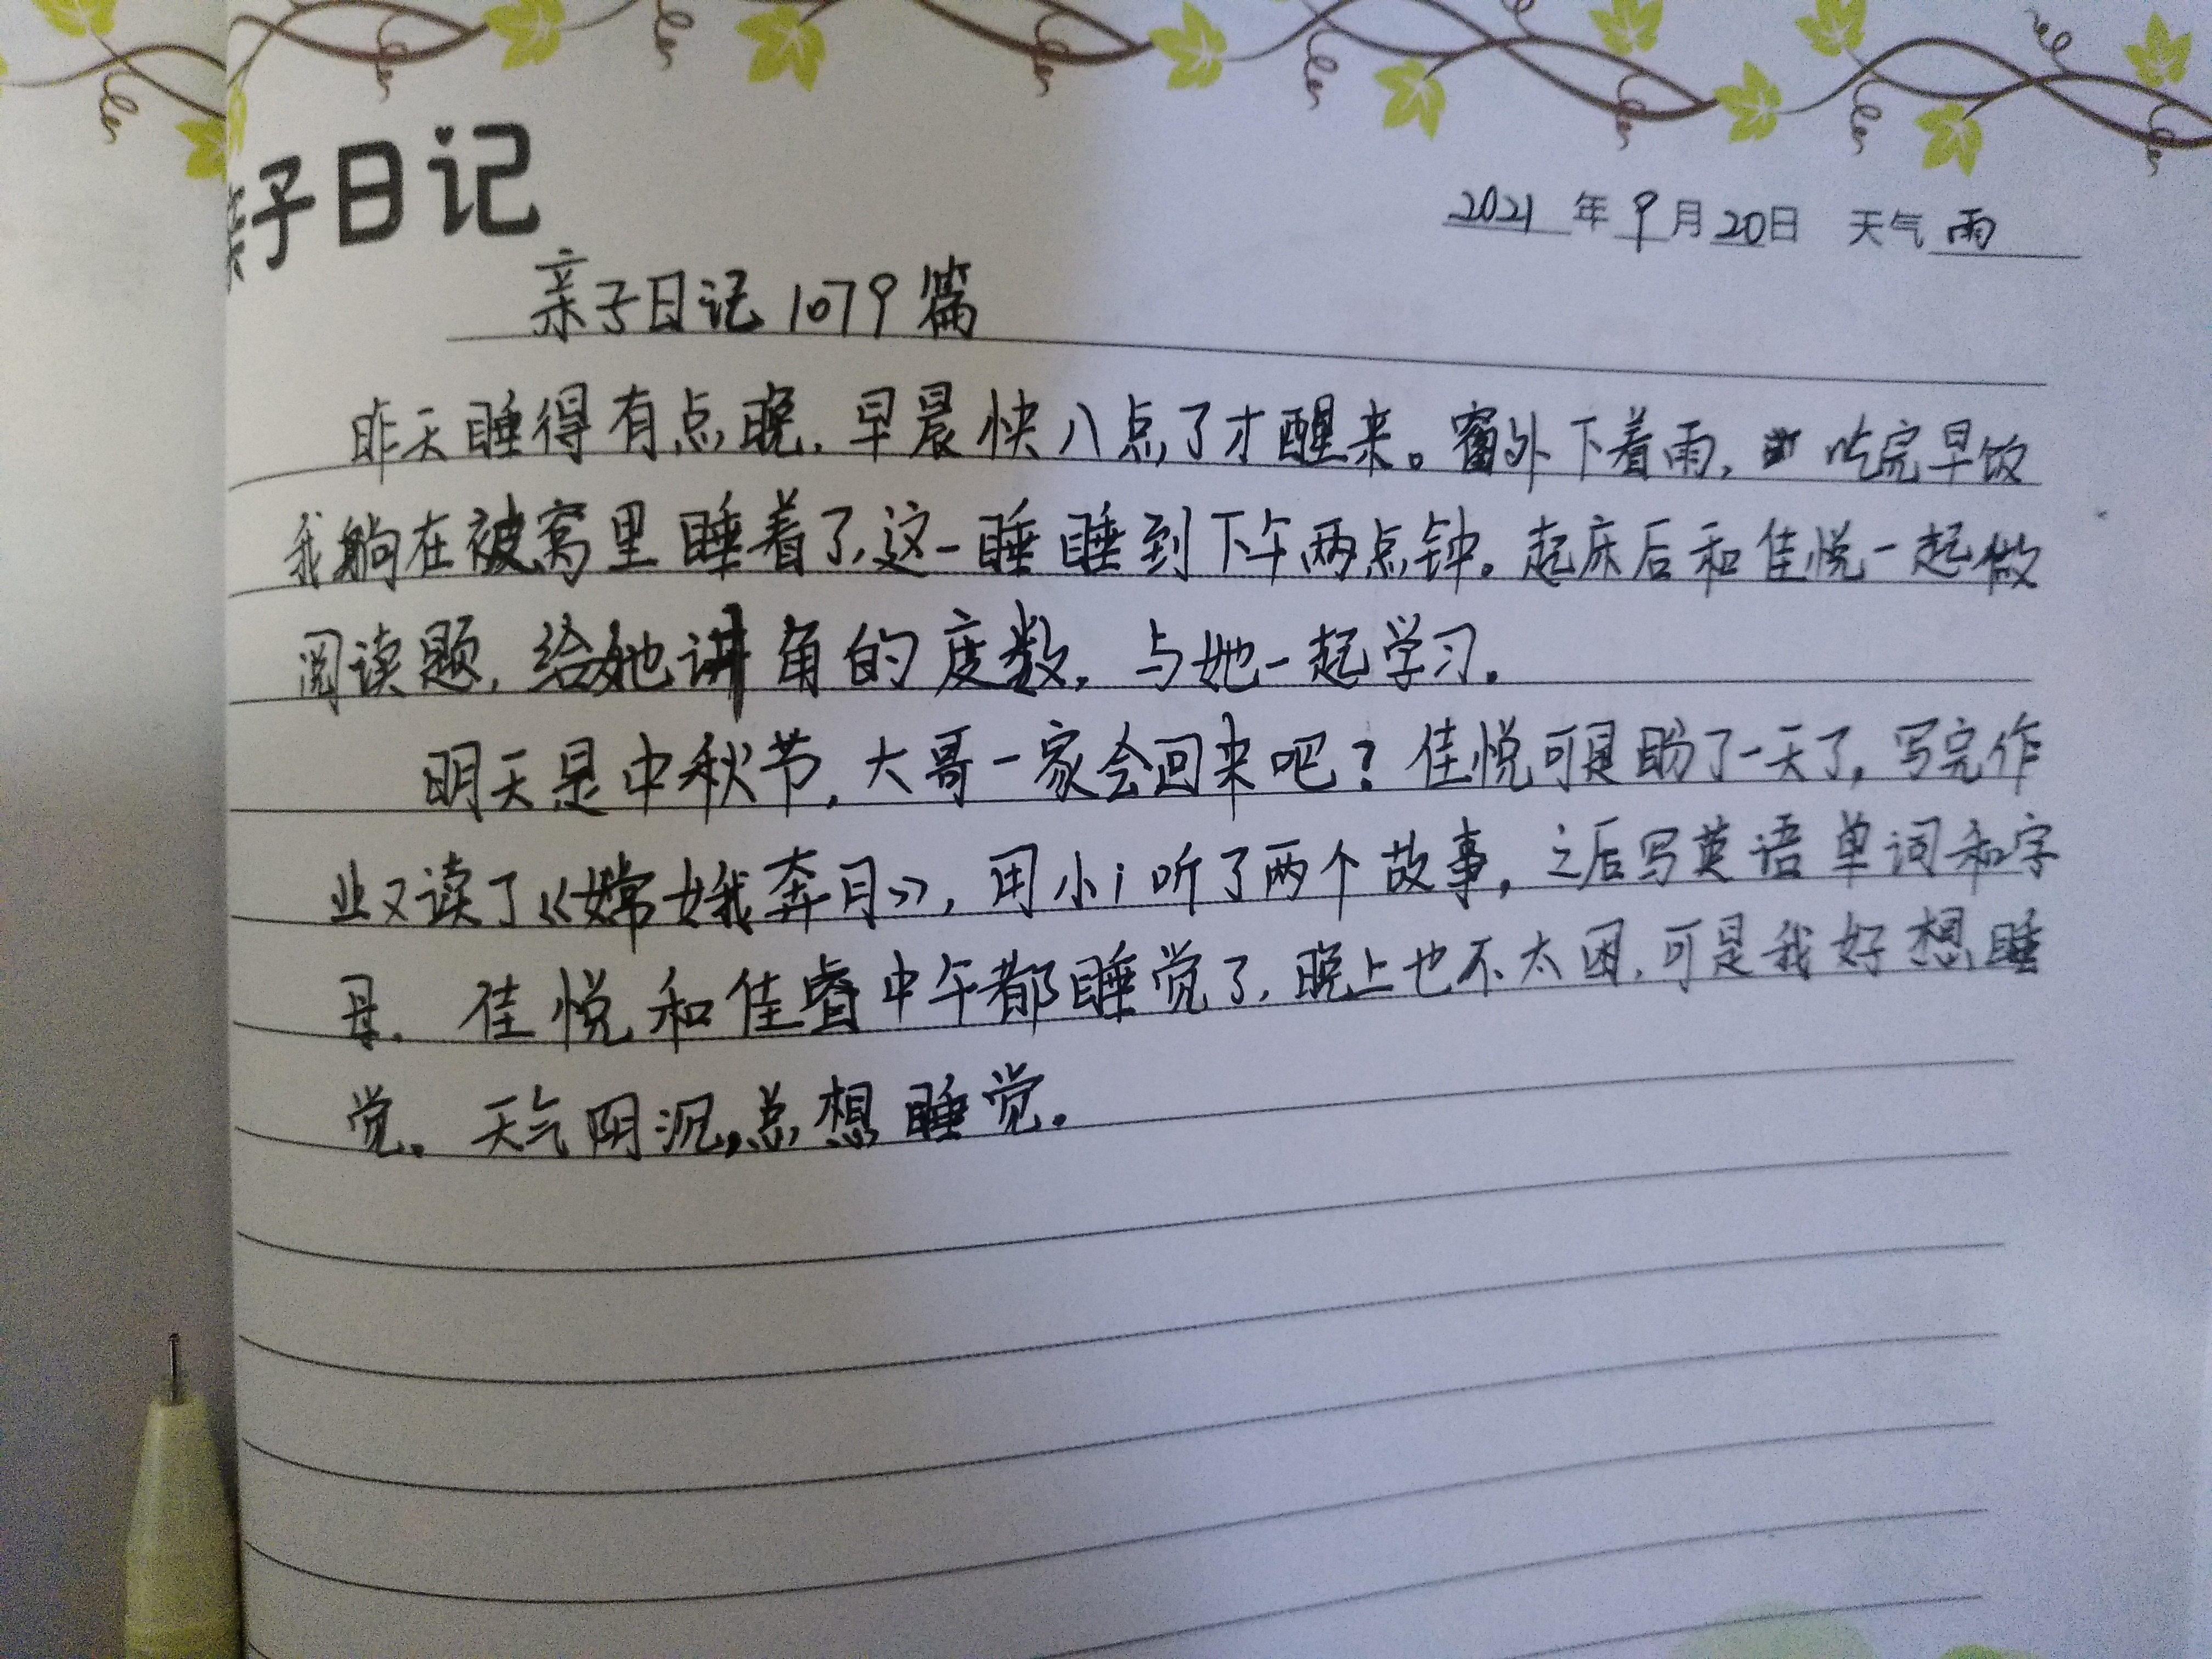 亲子日记
2021年9月20日 天气 雨
亲子日记1079篇
昨天睡得有点晚，早晨快八点了才醒来。窗外下着雨，吃完早饭
我躺在被窝里睡着了，这一睡睡到下午两点钟。起床后和佳悦一起做
阅读题，给她讲角的度数，与她一起学习。
明天是中秋节，大哥一家会回来吧？佳悦可是盼了一天了，写完作
业又读了《嫦娥奔月》，用小i听了两个故事，之后写英语单词和字
母。佳悦和佳睿中午都睡觉了，晚上也不太困，可是我好想睡
觉。天气阴沉，总想睡觉。